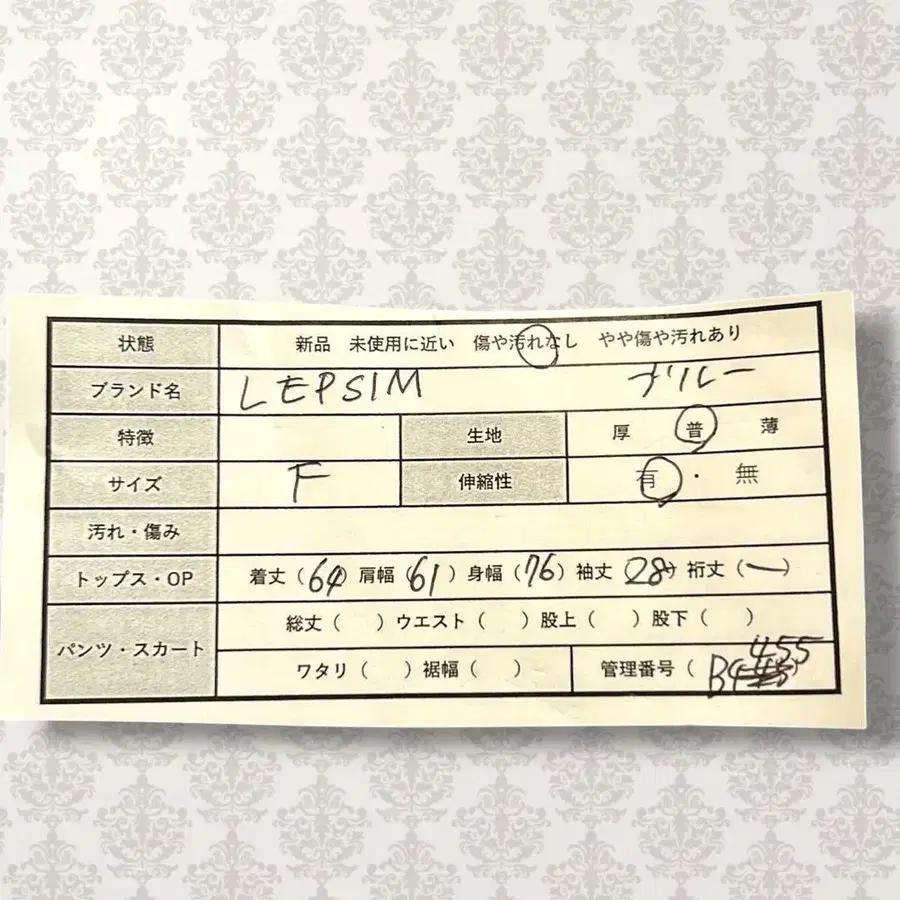 状態 新品 未使用に近い 傷や汚れなし やや傷や汚れあり
ブランド名 LEPSIM ブルー
特徴 生地 厚 普 薄
サイズ F 伸縮性 有・無
汚れ・傷み
トップス・OP 着丈(64) 肩幅(61) 身幅(76) 袖丈(28) 裄丈(ー)
パンツ・スカート 総丈( ) ウエスト( ) 股上( ) 股下( )
ワタリ( ) 裾幅( ) 管理番号( 455